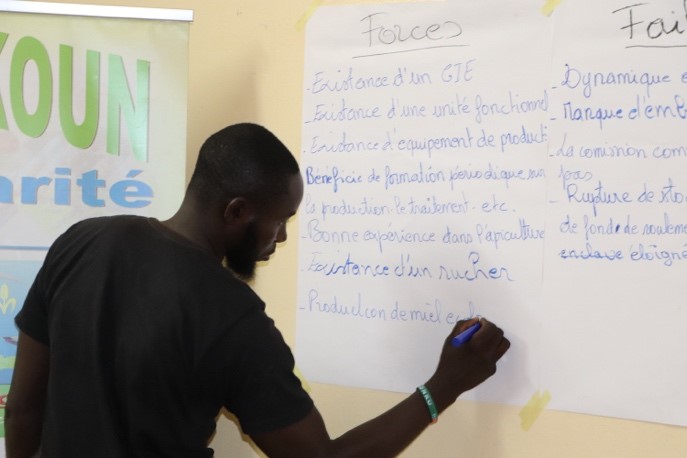 KOUN
arité
Forces
- Existance d'un GIE
- Existance d'une unité fonctionnel
- Existance d'equipement de producti
Bénéficie de formation périodique sur
la production le traitement etc.
- Bonne expérience dans l'apiculture
- Existance d'un rucher
- Production de miel
Fai
- Dynamique
- Manque d'emb
La commission com
pas
- Rupture de sto
de fond de roulem
enclave éloigné